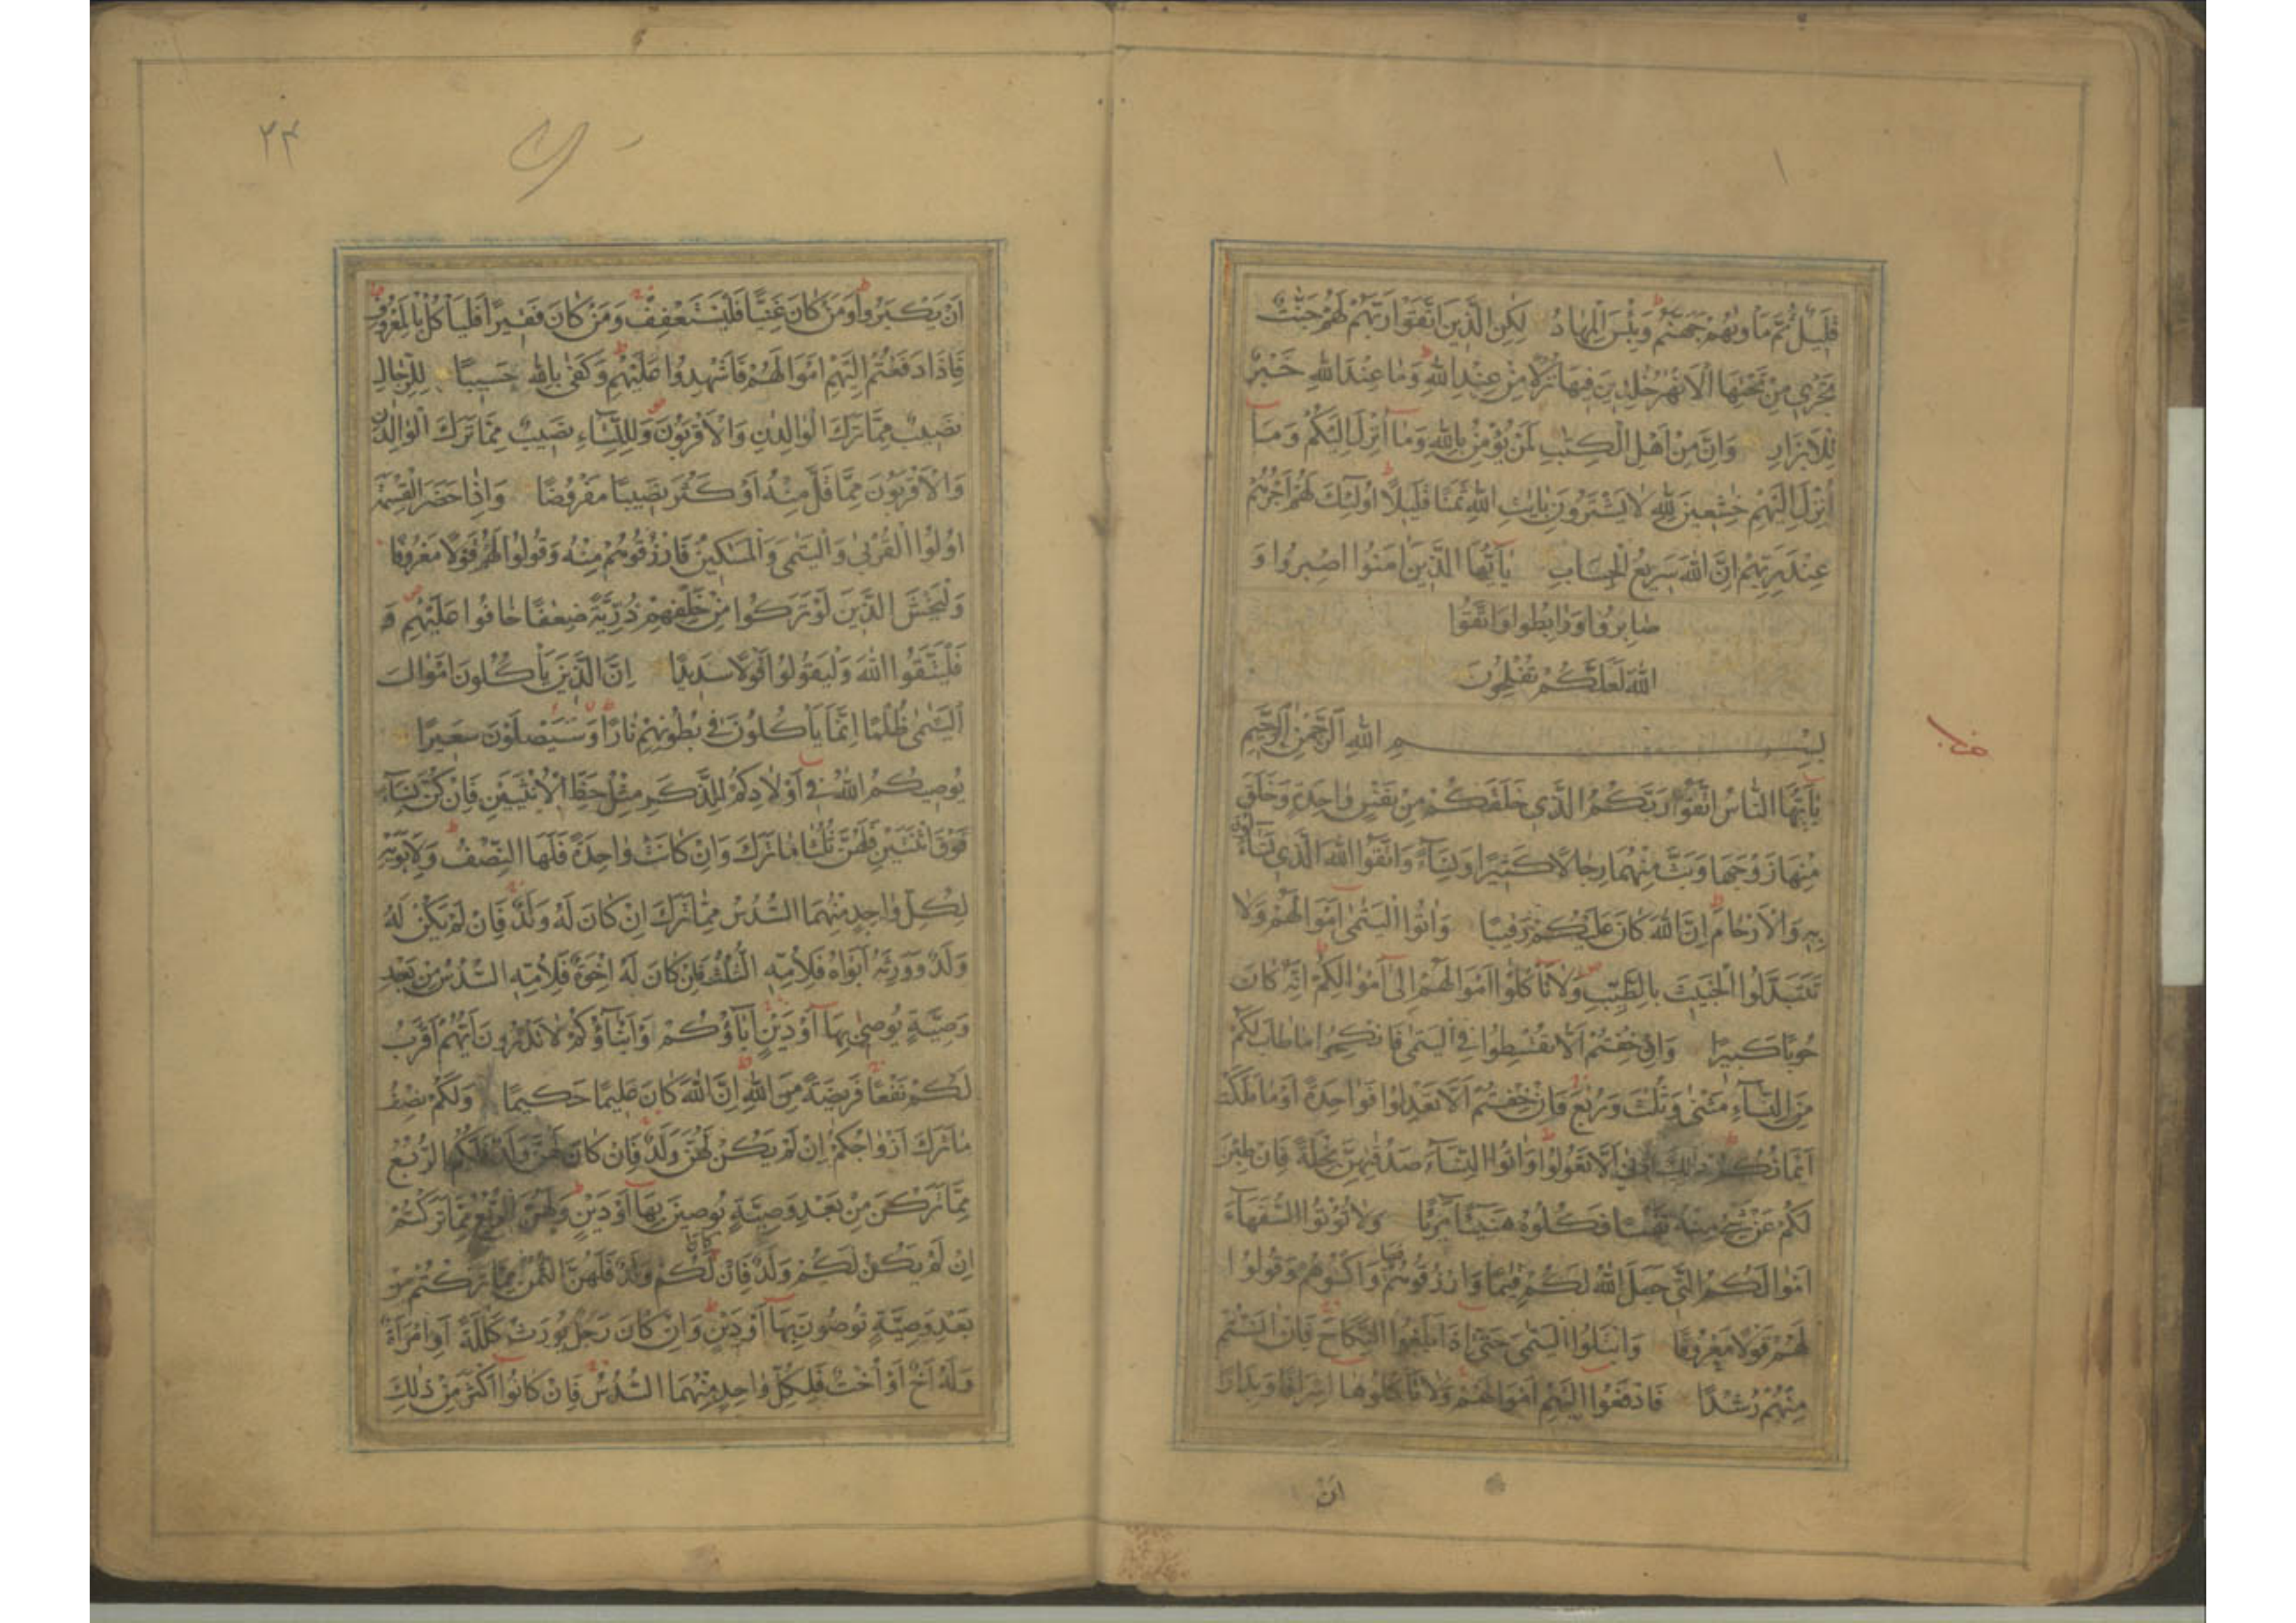 قَلِيلٌ ثُمَّ مَأْوٰىهُمْ جَهَنَّمُ وَبِئْسَ الْمِهَادُ لٰكِنِ الَّذِينَ اتَّقَوْا رَبَّهُمْ لَهُمْ جَنّٰتٌ
تَجْرِي مِنْ تَحْتِهَا الْاَنْهٰرُ خٰلِدِينَ فِيهَا نُزُلًا مِنْ عِنْدِ اللّٰهِ وَمَا عِنْدَ اللّٰهِ خَيْرٌ
لِلْاَبْرَارِ وَاِنَّ مِنْ اَهْلِ الْكِتٰبِ لَمَنْ يُؤْمِنُ بِاللّٰهِ وَمَا اُنْزِلَ اِلَيْكُمْ وَمَا
اُنْزِلَ اِلَيْهِمْ خٰشِعِينَ لِلّٰهِ لَا يَشْتَرُونَ بِاٰيٰتِ اللّٰهِ ثَمَنًا قَلِيلًا اُولٰئِكَ لَهُمْ اَجْرُهُمْ
عِنْدَ رَبِّهِمْ اِنَّ اللّٰهَ سَرِيعُ الْحِسَابِ يٰٓاَيُّهَا الَّذِينَ اٰمَنُوا اصْبِرُوا وَ
صَابِرُوا وَرَابِطُوا وَاتَّقُوا
اللّٰهَ لَعَلَّكُمْ تُفْلِحُونَ
بِسْمِ اللّٰهِ الرَّحْمٰنِ الرَّحِيمِ
يٰٓاَيُّهَا النَّاسُ اتَّقُوْا رَبَّكُمُ الَّذِي خَلَقَكُمْ مِنْ نَفْسٍ وٰاحِدَةٍ وَخَلَقَ
مِنْهَا زَوْجَهَا وَبَثَّ مِنْهُمَا رِجَالًا كَثِيرًا وَنِسَآءً وَاتَّقُوا اللّٰهَ الَّذِي تَسَآءَلُونَ
بِهِ وَالْاَرْحَامَ اِنَّ اللّٰهَ كَانَ عَلَيْكُمْ رَقِيبًا وَاٰتُوا الْيَتٰمٰى اَمْوَالَهُمْ وَلَا
تَتَبَدَّلُوا الْخَبِيثَ بِالطَّيِّبِ وَلَا تَأْكُلُوا اَمْوَالَهُمْ اِلٰى اَمْوَالِكُمْ اِنَّهُ كَانَ
حُوبًا كَبِيرًا وَاِنْ خِفْتُمْ اَلَّا تُقْسِطُوا فِي الْيَتٰمٰى فَانْكِحُوا مَا طَابَ لَكُمْ
مِنَ النِّسَآءِ مَثْنٰى وَثُلٰثَ وَرُبٰعَ فَاِنْ خِفْتُمْ اَلَّا تَعْدِلُوا فَوٰاحِدَةً اَوْ مَا مَلَكَتْ
اَيْمَانُكُمْ ذٰلِكَ اَدْنٰى اَلَّا تَعُولُوا وَاٰتُوا النِّسَآءَ صَدُقٰتِهِنَّ نِحْلَةً فَاِنْ طِبْنَ
لَكُمْ عَنْ شَيْءٍ مِنْهُ نَفْسًا فَكُلُوهُ هَنِيئًا مَرِيئًا وَلَا تُؤْتُوا السُّفَهَآءَ
اَمْوَالَكُمُ الَّتِي جَعَلَ اللّٰهُ لَكُمْ قِيٰمًا وَارْزُقُوهُمْ فِيهَا وَاكْسُوهُمْ وَقُولُوا
لَهُمْ قَوْلًا مَعْرُوفًا وَابْتَلُوا الْيَتٰمٰى حَتّٰى اِذَا بَلَغُوا النِّكَاحَ فَاِنْ اٰنَسْتُمْ
مِنْهُمْ رُشْدًا فَادْفَعُوا اِلَيْهِمْ اَمْوَالَهُمْ وَلَا تَأْكُلُوهَا اِسْرَافًا وَبِدَارًا
اَنْ
٢٣
اَنْ يَكْبَرُوا وَمَنْ كَانَ غَنِيًّا فَلْيَسْتَعْفِفْ وَمَنْ كَانَ فَقِيرًا فَلْيَأْكُلْ بِالْمَعْرُوفِ
فَاِذَا دَفَعْتُمْ اِلَيْهِمْ اَمْوَالَهُمْ فَاَشْهِدُوا عَلَيْهِمْ وَكَفٰى بِاللّٰهِ حَسِيبًا لِلرِّجَالِ
نَصِيبٌ مِمَّا تَرَكَ الْوَالِدٰنِ وَالْاَقْرَبُونَ وَلِلنِّسَآءِ نَصِيبٌ مِمَّا تَرَكَ الْوَالِدٰنِ
وَالْاَقْرَبُونَ مِمَّا قَلَّ مِنْهُ اَوْ كَثُرَ نَصِيبًا مَفْرُوضًا وَاِذَا حَضَرَ الْقِسْمَةَ
اُولُوا الْقُرْبٰى وَالْيَتٰمٰى وَالْمَسٰكِينُ فَارْزُقُوهُمْ مِنْهُ وَقُولُوا لَهُمْ قَوْلًا مَعْرُوفًا
وَلْيَخْشَ الَّذِينَ لَوْ تَرَكُوا مِنْ خَلْفِهِمْ ذُرِّيَّةً ضِعٰفًا خَافُوا عَلَيْهِمْ وَ
فَلْيَتَّقُوا اللّٰهَ وَلْيَقُولُوا قَوْلًا سَدِيدًا اِنَّ الَّذِينَ يَأْكُلُونَ اَمْوَالَ
الْيَتٰمٰى ظُلْمًا اِنَّمَا يَأْكُلُونَ فِي بُطُونِهِمْ نَارًا وَسَيَصْلَوْنَ سَعِيرًا
يُوصِيكُمُ اللّٰهُ فِي اَوْلَادِكُمْ لِلذَّكَرِ مِثْلُ حَظِّ الْاُنْثَيَيْنِ فَاِنْ كُنَّ نِسَآءً
فَوْقَ اثْنَتَيْنِ فَلَهُنَّ ثُلُثَا مَا تَرَكَ وَاِنْ كَانَتْ وٰاحِدَةً فَلَهَا النِّصْفُ وَلِاَبَوَيْهِ
لِكُلِّ وٰاحِدٍ مِنْهُمَا السُّدُسُ مِمَّا تَرَكَ اِنْ كَانَ لَهُ وَلَدٌ فَاِنْ لَمْ يَكُنْ لَهُ
وَلَدٌ وَوَرِثَهُ اَبَوَاهُ فَلِاُمِّهِ الثُّلُثُ فَاِنْ كَانَ لَهُ اِخْوَةٌ فَلِاُمِّهِ السُّدُسُ مِنْ بَعْدِ
وَصِيَّةٍ يُوصِي بِهَا اَوْ دَيْنٍ اٰبَآؤُكُمْ وَاَبْنَآؤُكُمْ لَا تَدْرُونَ اَيُّهُمْ اَقْرَبُ
لَكُمْ نَفْعًا فَرِيضَةً مِنَ اللّٰهِ اِنَّ اللّٰهَ كَانَ عَلِيمًا حَكِيمًا وَلَكُمْ نِصْفُ
مَا تَرَكَ اَزْوَاجُكُمْ اِنْ لَمْ يَكُنْ لَهُنَّ وَلَدٌ فَاِنْ كَانَ لَهُنَّ وَلَدٌ فَلَكُمُ الرُّبُعُ
مِمَّا تَرَكْنَ مِنْ بَعْدِ وَصِيَّةٍ يُوصِينَ بِهَا اَوْ دَيْنٍ وَلَهُنَّ الرُّبُعُ مِمَّا تَرَكْتُمْ
اِنْ لَمْ يَكُنْ لَكُمْ وَلَدٌ فَاِنْ كَانَ لَكُمْ وَلَدٌ فَلَهُنَّ الثُّمُنُ مِمَّا تَرَكْتُمْ مِنْ
بَعْدِ وَصِيَّةٍ تُوصُونَ بِهَا اَوْ دَيْنٍ وَاِنْ كَانَ رَجُلٌ يُورَثُ كَلٰلَةً اَوِ امْرَاَةٌ
وَلَهُ اَخٌ اَوْ اُخْتٌ فَلِكُلِّ وٰاحِدٍ مِنْهُمَا السُّدُسُ فَاِنْ كَانُوا اَكْثَرَ مِنْ ذٰلِكَ